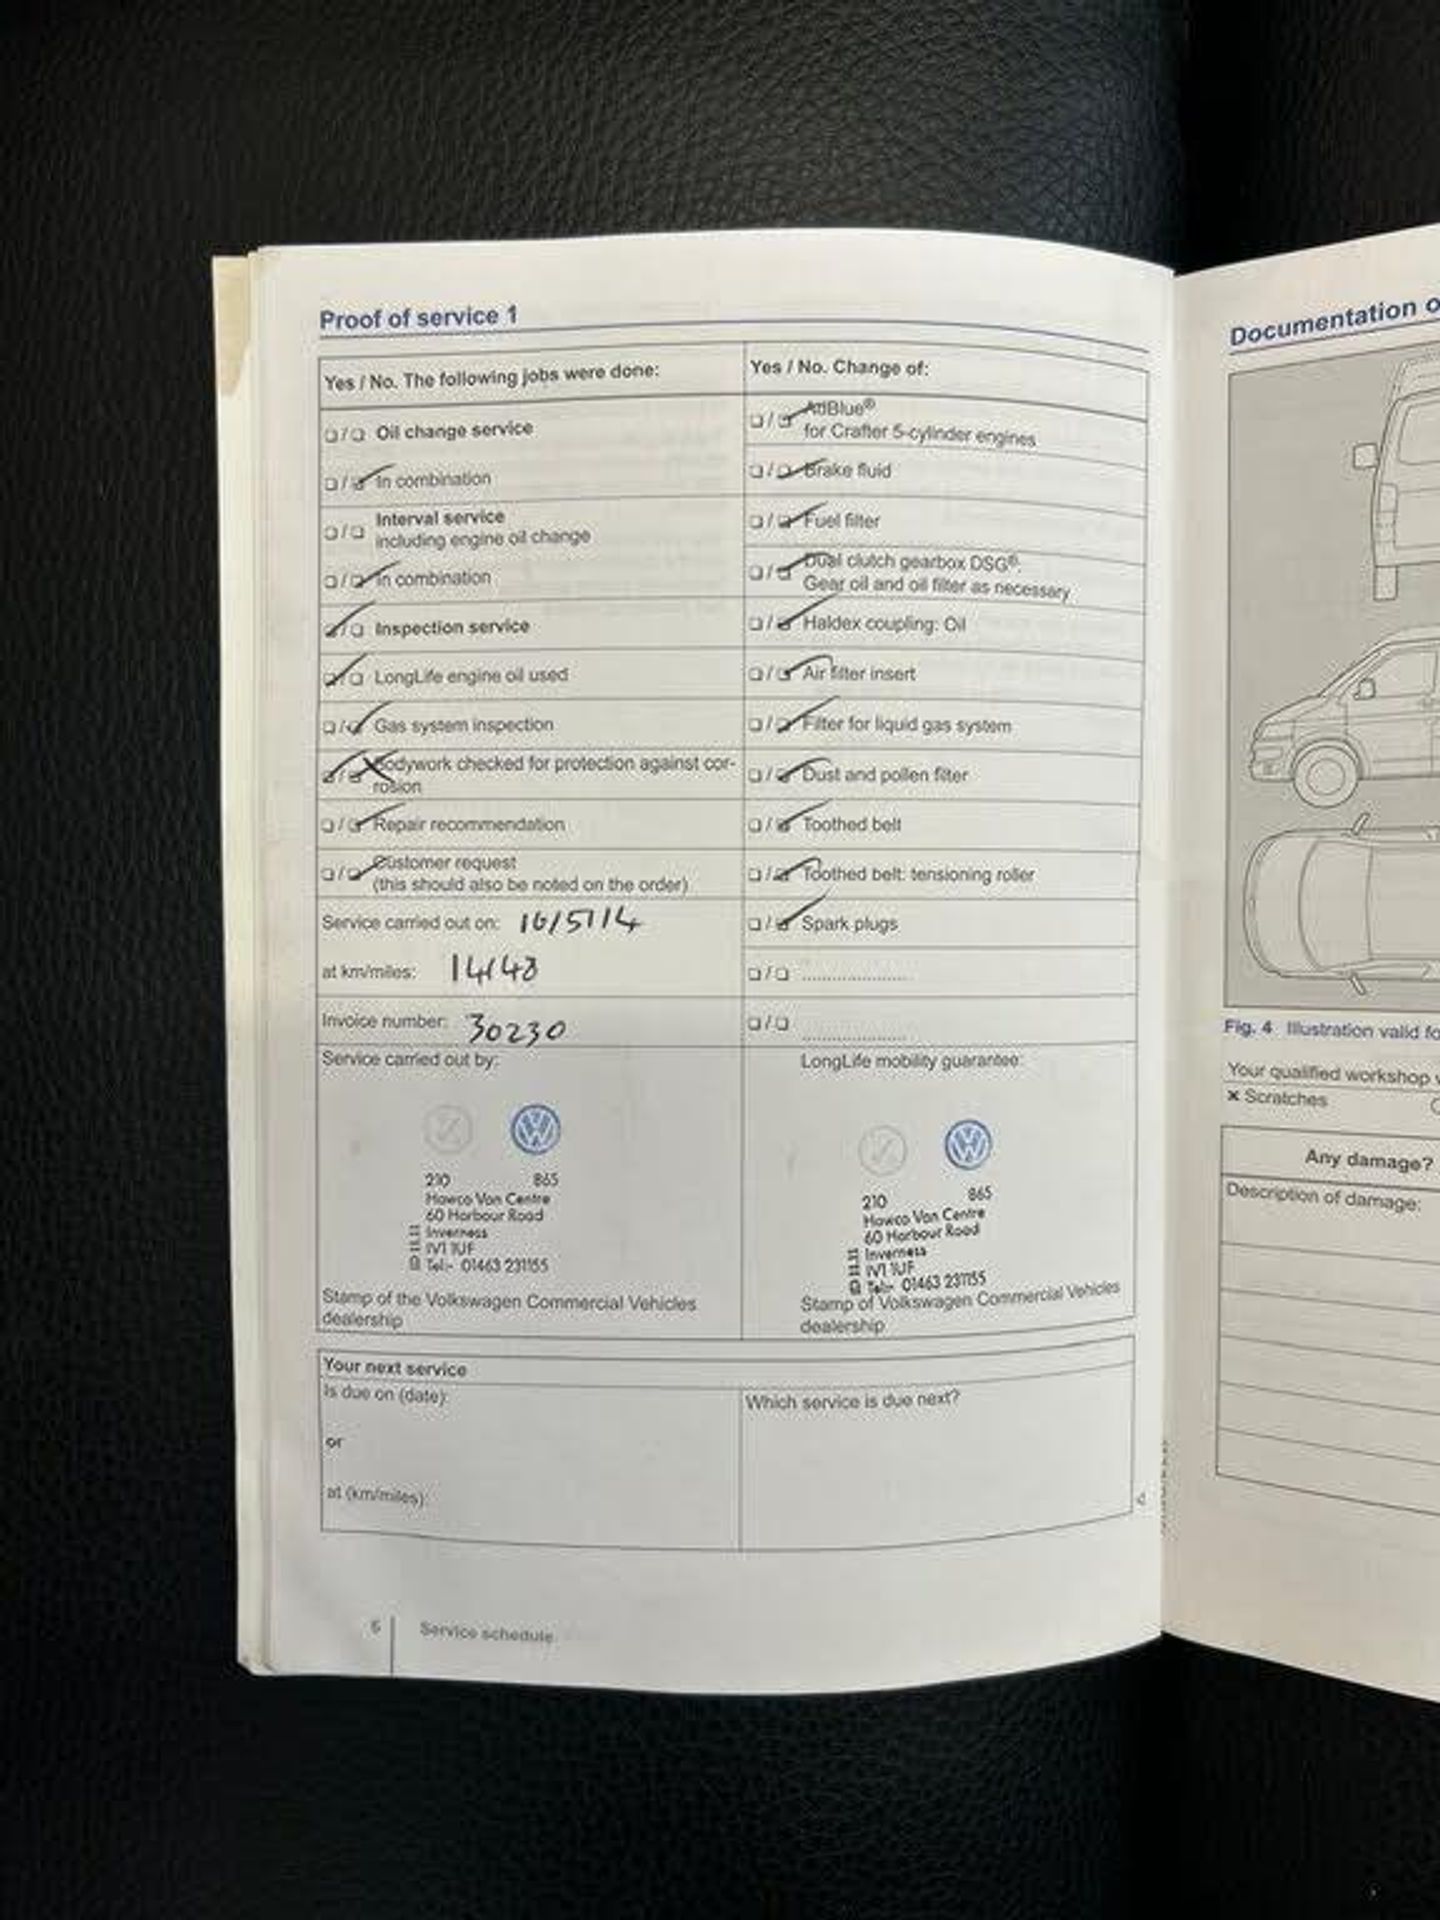 Proof of service 1
Yes / No. The following jobs were done:
Oil change service
In combination
Interval service
including engine oil change
In combination
Inspection service
LongLife engine oil used
Gas system inspection
Bodywork checked for protection against cor-
rosion
Repair recommendation
Customer request
(this should also be noted on the order)
Service carried out on: 16/5/14
at km/miles: 14148
Invoice number: 30230
Service carried out by:
210 865
Hawco Van Centre
60 Harbour Road
Inverness
IV1 1UF
Tel:- 01463 231155
Stamp of the Volkswagen Commercial Vehicles
dealership
Yes / No. Change of:
AdBlue®
for Crafter 5-cylinder engines
Brake fluid
Fuel filter
Dual clutch gearbox DSG®:
Gear oil and oil filter as necessary
Haldex coupling: Oil
Air filter insert
Filter for liquid gas system
Dust and pollen filter
Toothed belt
Toothed belt: tensioning roller
Spark plugs
LongLife mobility guarantee:
210 865
Hawco Van Centre
60 Harbour Road
Inverness
IV1 1UF
Tel:- 01463 231155
Stamp of Volkswagen Commercial Vehicles
dealership
Your next service
Is due on (date):
or
at (km/miles):
Which service is due next?
6 Service schedule
Documentation o
Fig. 4 Illustration valid fo
Your qualified workshop
× Scratches
Any damage?
Description of damage: